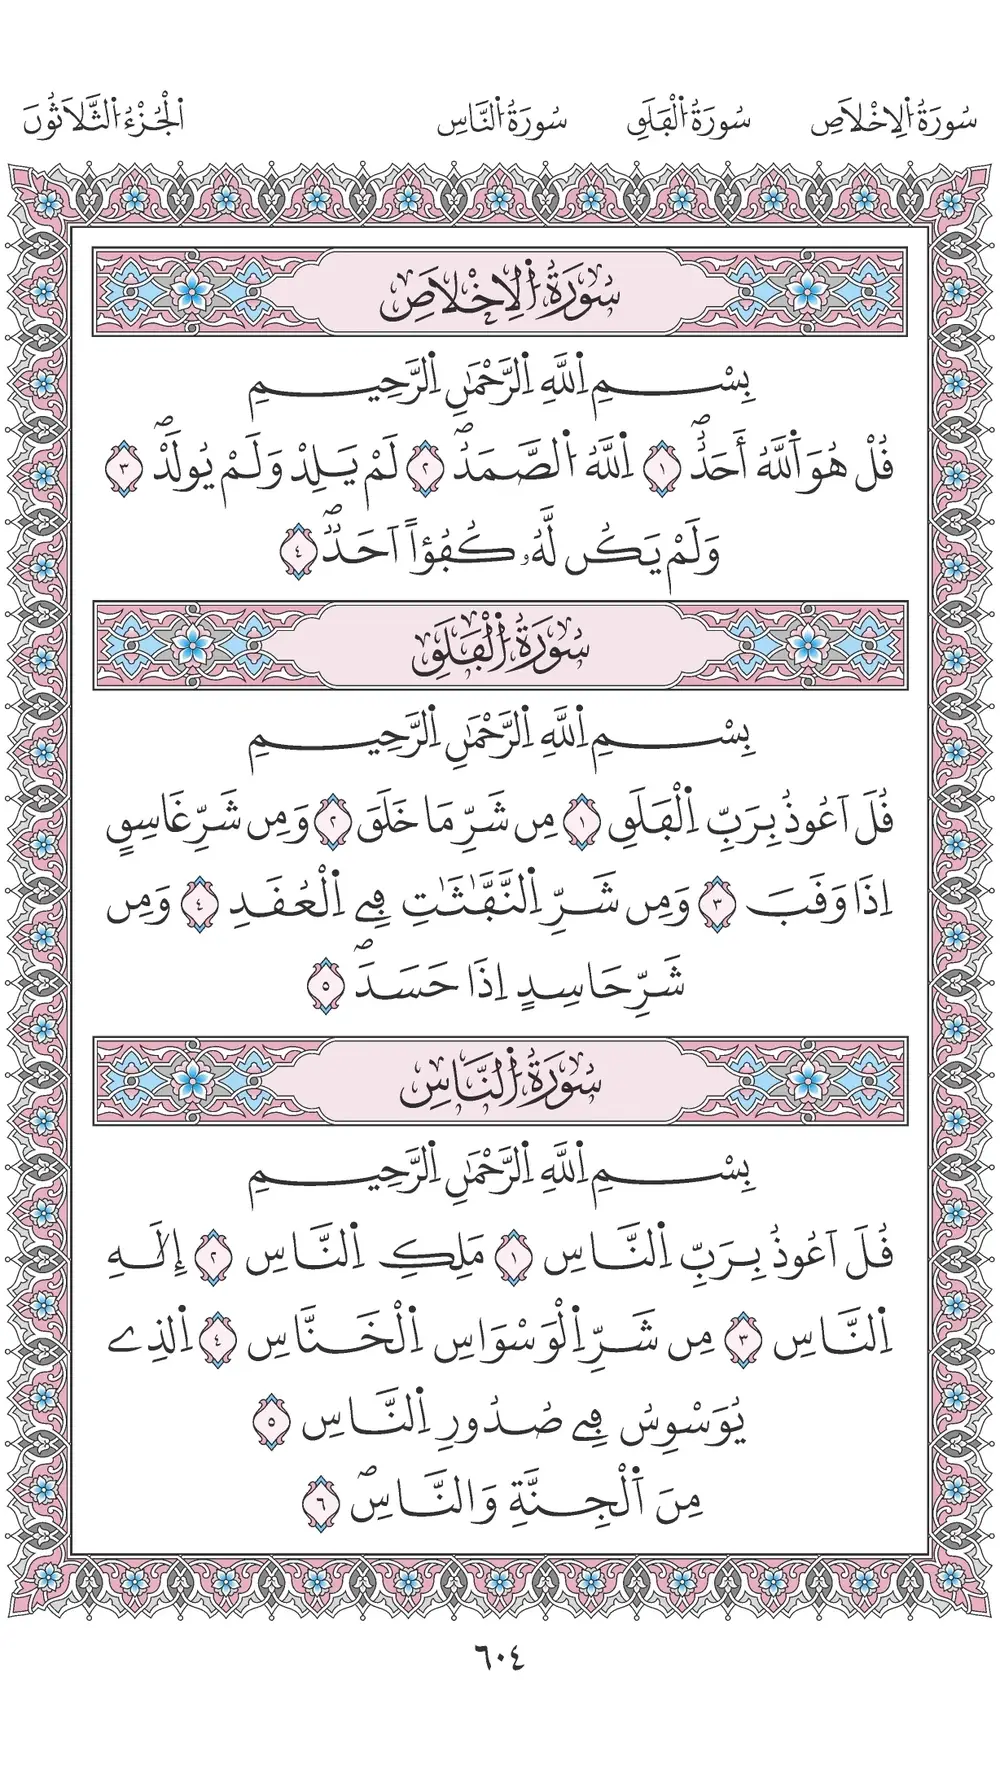 سُورَةُ اُ۬لِاخْلَاصِ سُورَةُ اُ۬لْفَلَقِ سُورَةُ اُ۬لنَّاسِ اَ۬لْجُزْءُ اُ۬لثَّلَاثُونَ
سُورَةُ اُ۬لِاخْلَاصِ
بِسْمِ اِ۬للَّهِ اِ۬لرَّحْمَٰنِ اِ۬لرَّحِيمِ
قُلْ هُوَ اَ۬للَّهُ أَحَدٌۖ ١ اِ۬للَّهُ اُ۬لصَّمَدُۖ ٢ لَمْ يَلِدْ وَلَمْ يُولَدْۖ ٣
وَلَمْ يَكُن لَّهُۥ كُفُؤاً اَحَدٌۖ ٤
سُورَةُ اُ۬لْفَلَقِ
بِسْمِ اِ۬للَّهِ اِ۬لرَّحْمَٰنِ اِ۬لرَّحِيمِ
قُلَ اَعُوذُ بِرَبِّ اِ۬لْفَلَقِ ١ مِن شَرِّ مَا خَلَقَ ٢ وَمِن شَرِّ غَاسِقٍ
اِذَا وَقَبَ ٣ وَمِن شَرِّ اِ۬لنَّفَّٰثَٰتِ فِے اِ۬لْعُقَدِ ٤ وَمِن
شَرِّ حَاسِدٍ اِذَا حَسَدَۖ ٥
سُورَةُ اُ۬لنَّاسِ
بِسْمِ اِ۬للَّهِ اِ۬لرَّحْمَٰنِ اِ۬لرَّحِيمِ
قُلَ اَعُوذُ بِرَبِّ اِ۬لنَّاسِ ١ مَلِكِ اِ۬لنَّاسِ ٢ إِلَٰهِ
اِ۬لنَّاسِ ٣ مِن شَرِّ اِ۬لْوَسْوَاسِ اِ۬لْخَنَّاسِ ٤ اِ۬لذِے
يُوَسْوِسُ فِے صُدُورِ اِ۬لنَّاسِ ٥
مِنَ اَ۬لْجِنَّةِ وَالنَّاسِۖ ٦
٦٠٤